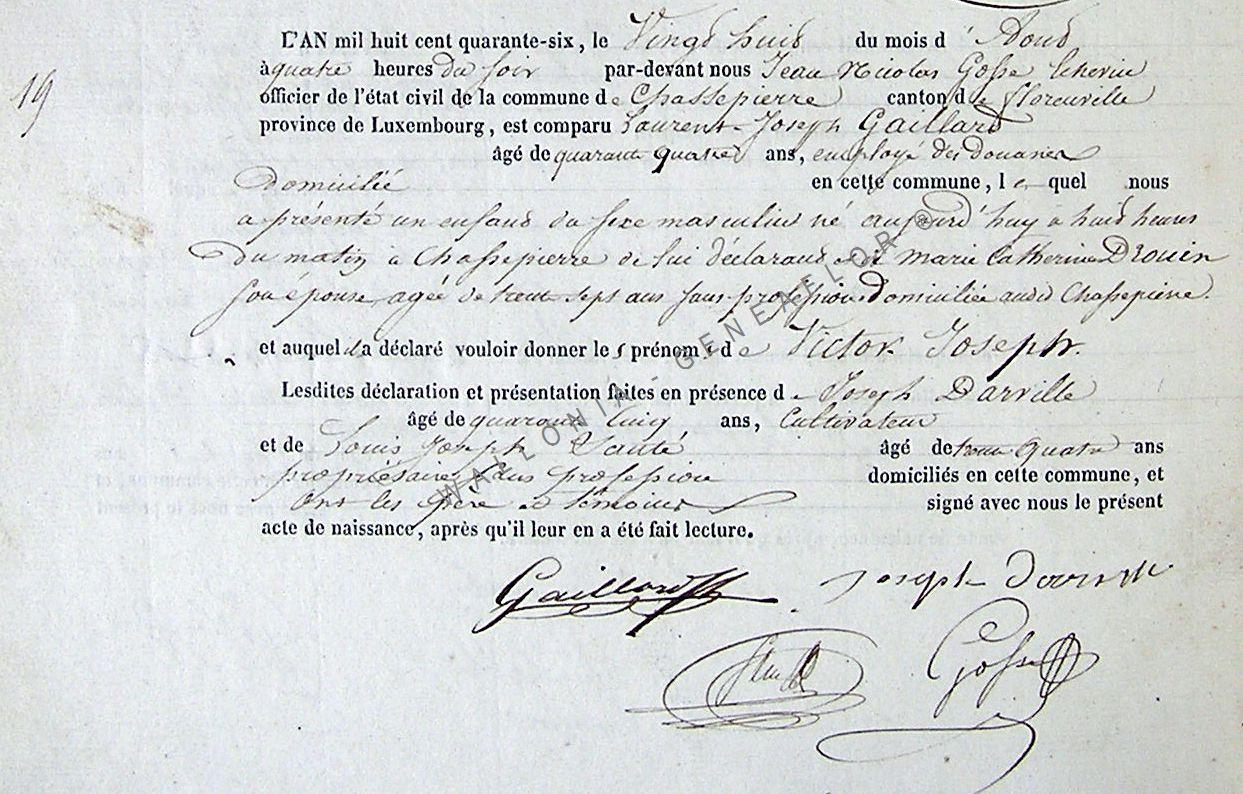 19
L'AN mil huit cent quarante-six, le Vingt huit du mois d'Aout
à quatre heures du soir par-devant nous Jean Nicolas Gosse Echevin
officier de l'état civil de la commune de Chassepierre canton de florenville
province de Luxembourg, est comparu Laurent Joseph Gaillard
âgé de quarante quatre ans, employé des douanes
domicilié en cette commune, le quel nous
a présenté un enfant du sexe masculin né aujourd'huy a huit heures
du matin a Chassepierre de lui déclarant et de marie Catherine Drouin
son épouse agée de trente sept ans sans profession domiciliée audit Chassepierre.
et auquel il a déclaré vouloir donner les prénoms de Victor Joseph.
Lesdites déclaration et présentation faites en présence de Joseph Darville
âgé de quarante cinq ans, Cultivateur
et de Louis Joseph âgé de trente quatre ans
propriétaire sans profession domiciliés en cette commune, et
ont les père et témoins signé avec nous le présent
acte de naissance, après qu'il leur en a été fait lecture.
Gaillard Joseph Darville
Gosse
WALLONIA - GENEAFLOR ®